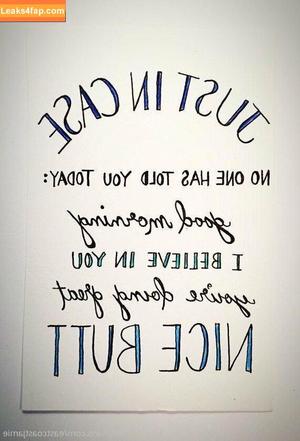 Leaks4fap.com
JUST IN CASE
NO ONE HAS TOLD YOU TODAY:
good morning
I BELIEVE IN YOU
you're doing great
NICE BUTT
/eastcoastjamie